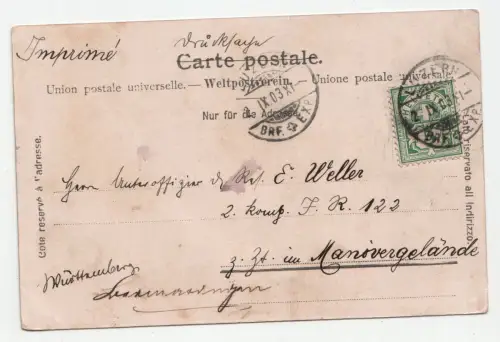 Imprimé
Drucksache
Carte postale.
Union postale universelle. — Weltpostverein. — Unione postale universale
Nur für die Adresse.
LUZERN
IX.03.XI
BRF. EXP.
LUZERN
BRF. EXP.
Côté réservé à l'adresse.
Lato riservato all'indirizzo
Herrn Unteroffizier d. Res. E. Weller
2. Komp. I. R. 122
z. Zt. im Manövergelände
Württemberg